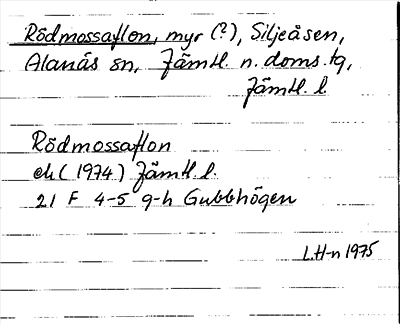 Rödmossaflon, myr (?), Siljeåsen,
Alanäs sn, Jämtl. n. doms. tg,
Jämtl. l.
Rödmossaflon
ek (1974) Jämtl. l.
21 F 4-5 g-h Gubbhögen
L.H-n 1975